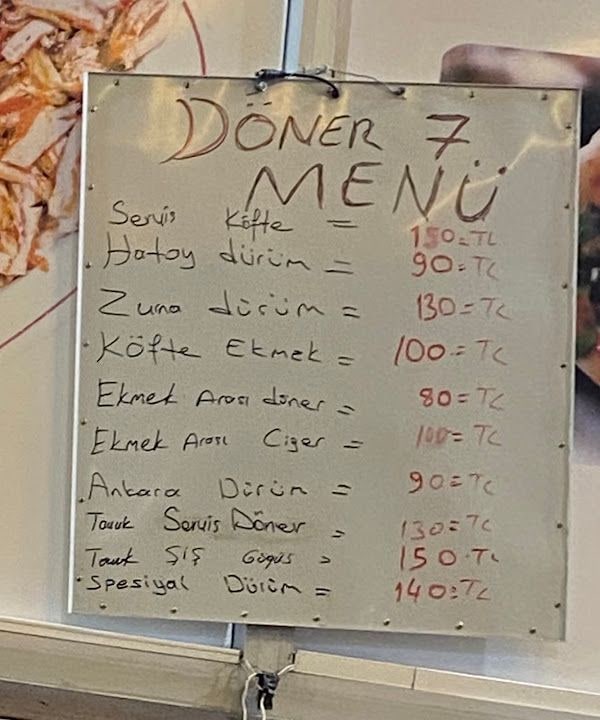 DÖNER 7
MENÜ
Servis Köfte = 150=TL
Hatay dürüm = 90=TL
Zurna dürüm = 130=TL
Köfte Ekmek = 100=TL
Ekmek Arası döner = 80=TL
Ekmek Arası Ciger = 100=TL
Ankara Dürüm = 90=TL
Tavuk Servis Döner = 130=TL
Tavuk ŞİŞ Göğüs = 150=TL
Spesiyal Dürüm = 140=TL